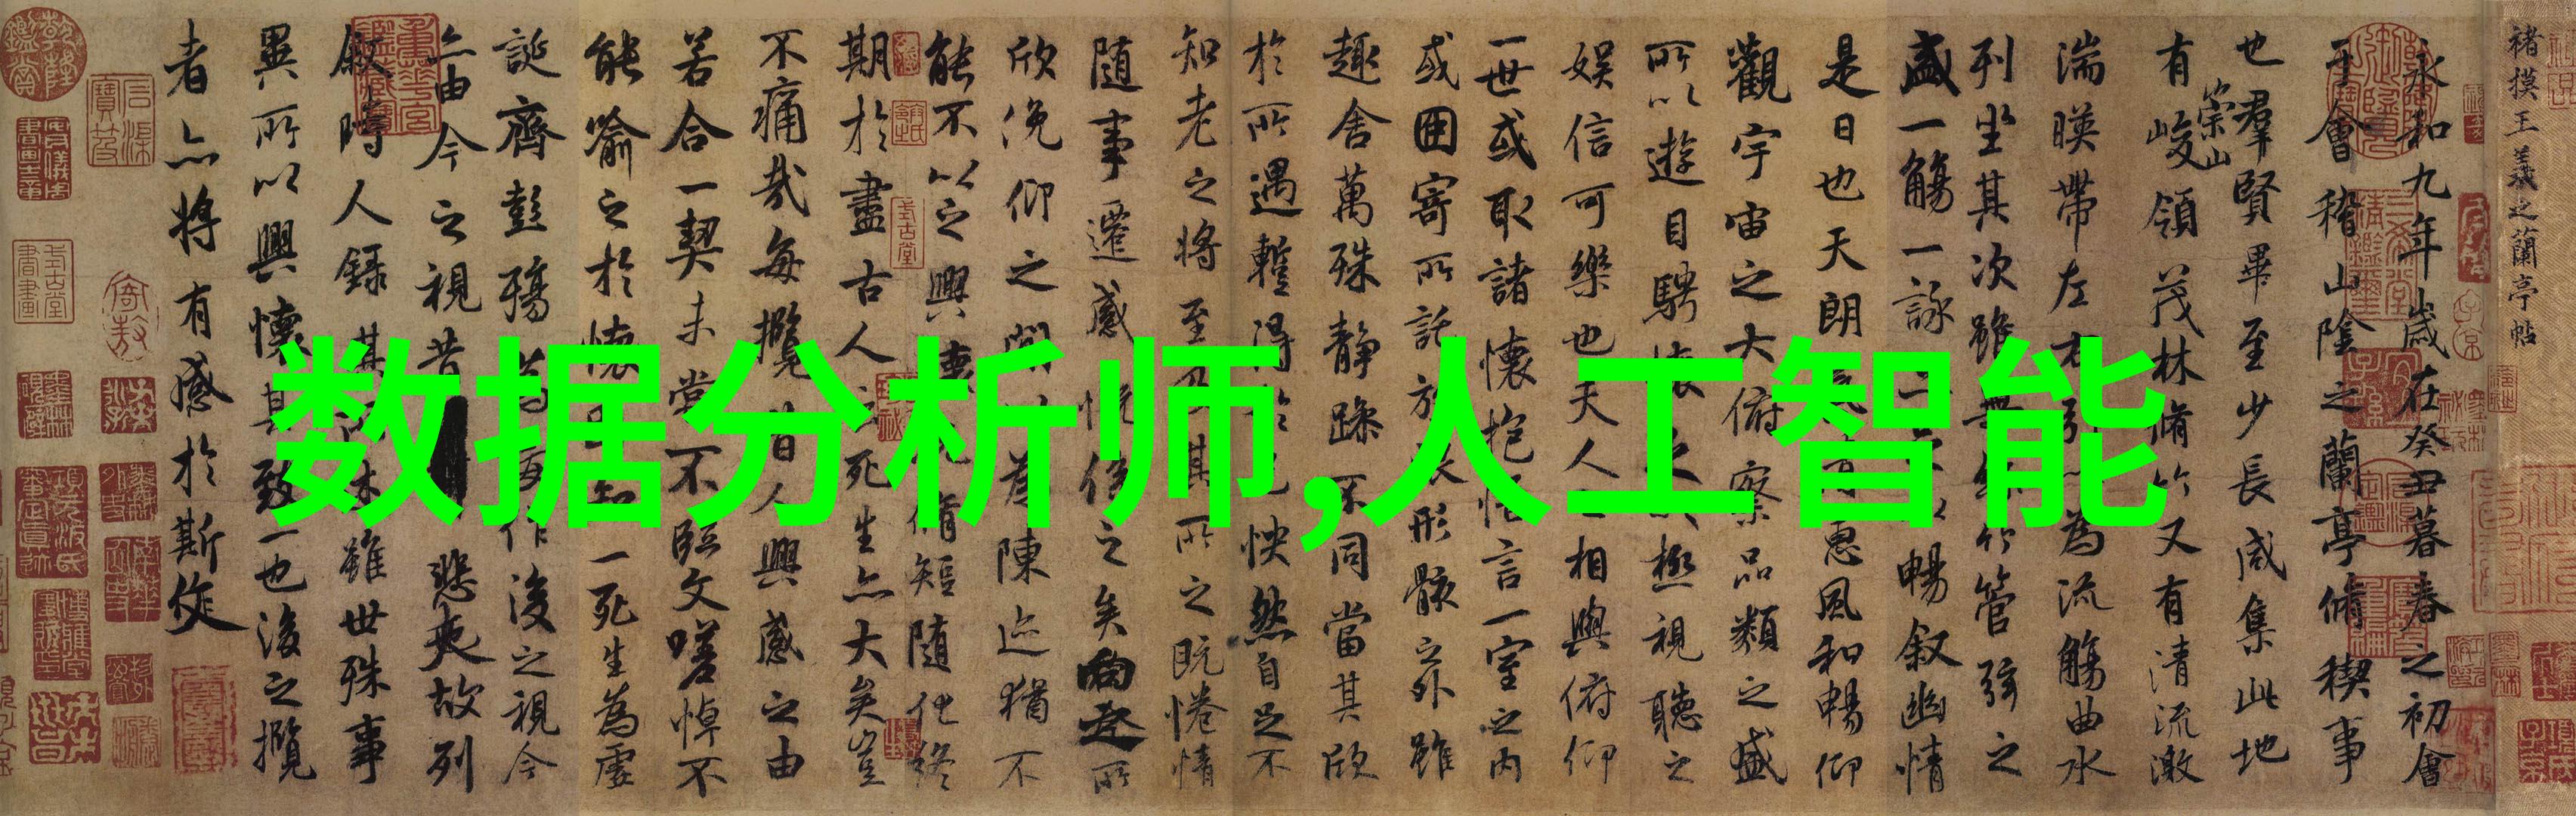 褚摸王羲之蘭亭帖
永和九年歲在癸丑暮春之初會
于會稽山陰之蘭亭脩稧事
也羣賢畢至少長咸集此地
有崇山峻領茂林脩竹又有清流激
湍暎帶左右引以為流觴曲水
列坐其次雖無絲竹管弦之
盛一觴一詠亦足以暢叙幽情
是日也天朗氣清惠風和暢仰
觀宇宙之大俯察品類之盛
所以遊目騁懷足以極視聽之
娛信可樂也夫人之相與俯仰
一世或取諸懷抱悟言一室之內
或因寄所託放浪形骸之外雖
趣舍萬殊靜躁不同當其欣
於所遇蹔得於己怏然自足不
知老之將至及其所之既惓情
隨事遷感慨係之矣向之所
欣俛仰之間以為陳迹猶不
能不以之興懷況脩短隨化終
期於盡古人云死生亦大矣豈
不痛哉每攬昔人興感之由
若合一契未嘗不臨文嗟悼不
能喻之於懷固知一死生為虛
誕齊彭殤為妄作後之視今
亦由今之視昔悲夫故列
叙時人錄其所述雖世殊事
異所以興懷其致一也後之攬
者亦將有感於斯文
数据分析师,人工智能